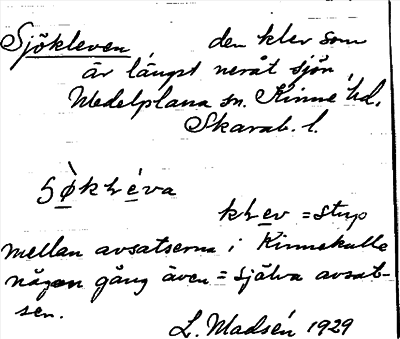 Sjökleven den klev som
är längst neråt sjön
Medelplana sn. Kinne hd.
Skarab. l.
klev = stup
mellan avsatserna i Kinnekulle
någon gång även = själva avsat-
sen.
L. Madsén 1929